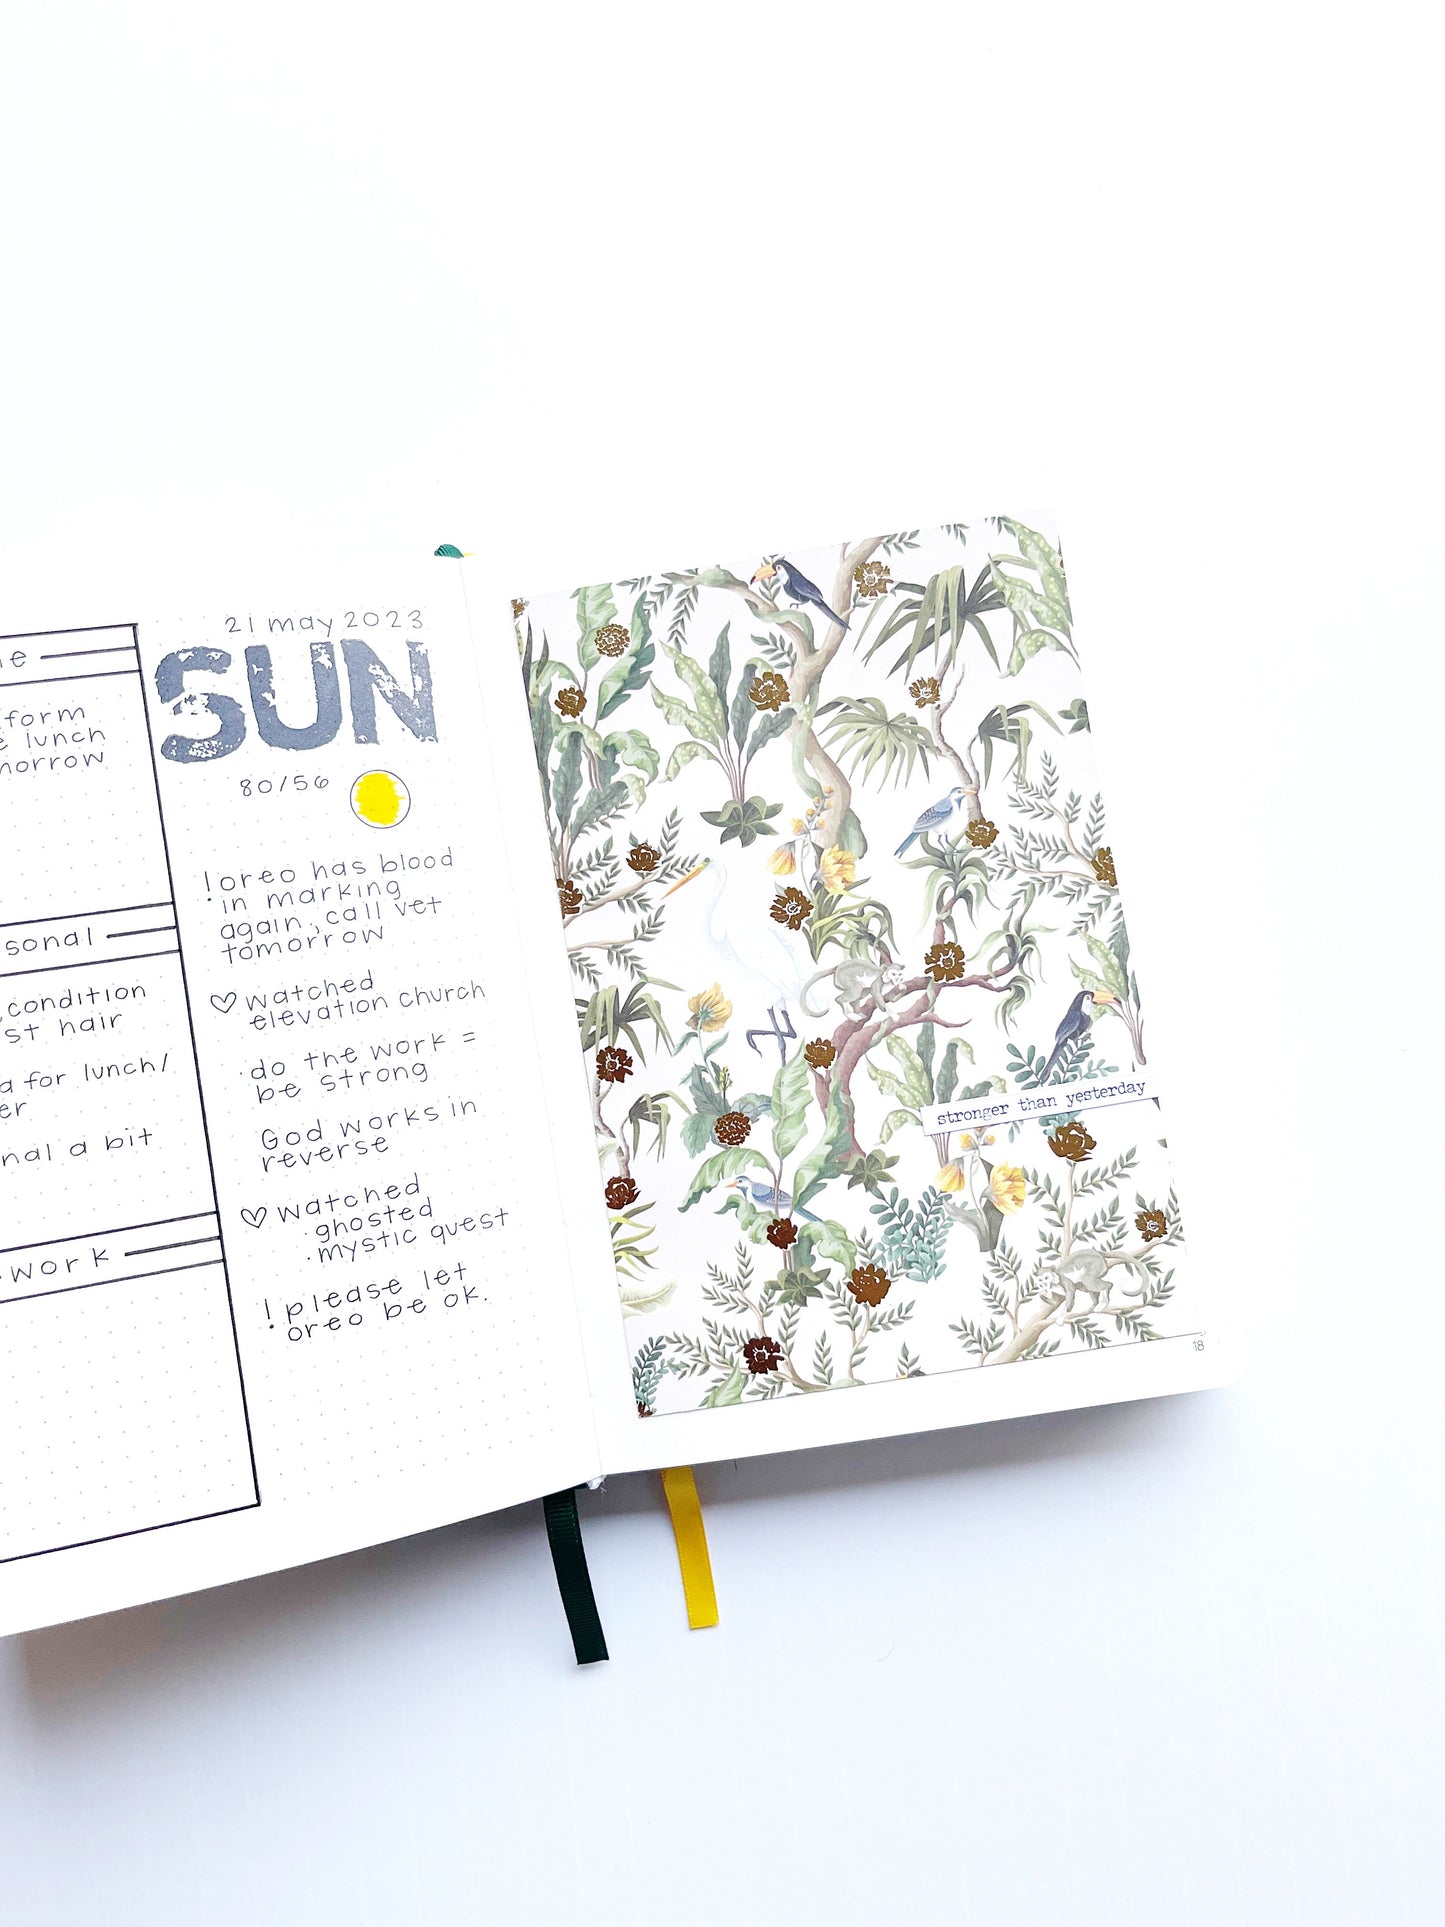 form
lunch
sonal
condition
st hair
for lunch/
er
nal a bit
work
21 may 2023
SUN
80/56
! oreo has blood
in marking
again, call vet
tomorrow
♡ watched
elevation church
· do the work =
be strong
God works in
reverse
♡ watched
· ghosted
· mystic quest
! please let
oreo be ok.
stronger than yesterday
18